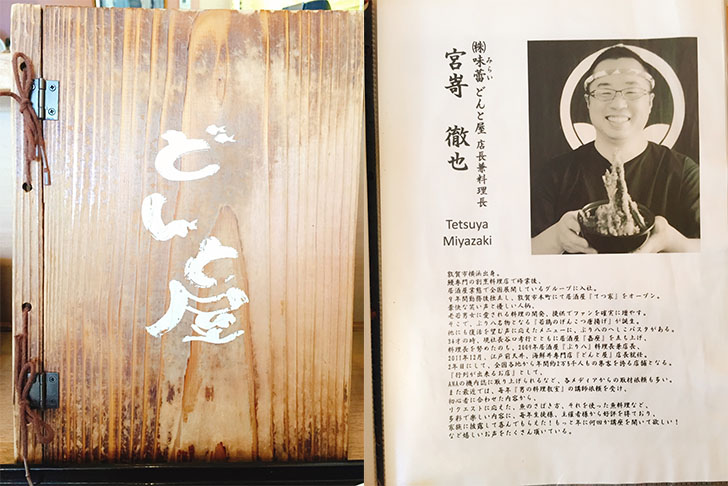 どんと屋
㈱味蕾どんと屋 店長兼料理長
みらい
宮嵜 徹也
Tetsuya
Miyazaki
敦賀市横浜出身。
鰻専門の割烹料理店で修業後、
居酒屋業態で全国展開しているグループに入社。
9年間勤務後独立し、敦賀市本町にて居酒屋『てつ家』をオープン。
豪快な笑い声と優しい人柄、
老若男女に愛される料理の開発、提供でファンを確実に増やす。
そこで、ぶり八名物となる「若鶏のげんこつ唐揚げ」が誕生。
他にも復活を望む声に応えたメニューに、ぶり八のへしこパスタがある。
34才の時、現社長谷口考行とともに居酒屋『喜座』を立ち上げ、
料理長を努めたのち、2009年居酒屋『ぶり八』料理長兼店長、
2011年12月、江戸前天丼、海鮮丼専門店『どんと屋』店長就任。
2年目にして、全国各地から年間約2万5千人もの集客を誇る店舗となる。
『行列が出来るお店』として、
ANAの機内誌に取り上げられるなど、各メディアからの取材依頼も多い。
また最近では、毎年『男の料理教室』の講師依頼を受け、
初心者に合わせた内容から、
リクエストに応えた、魚のさばき方、それを使った魚料理など、
多彩で楽しい内容に、毎年生徒様、主催者様から好評を得ており、
家族に披露して喜んでもらえた！もっと年に何回か講座を開いて欲しい！
など嬉しいお声をたくさん頂いている。